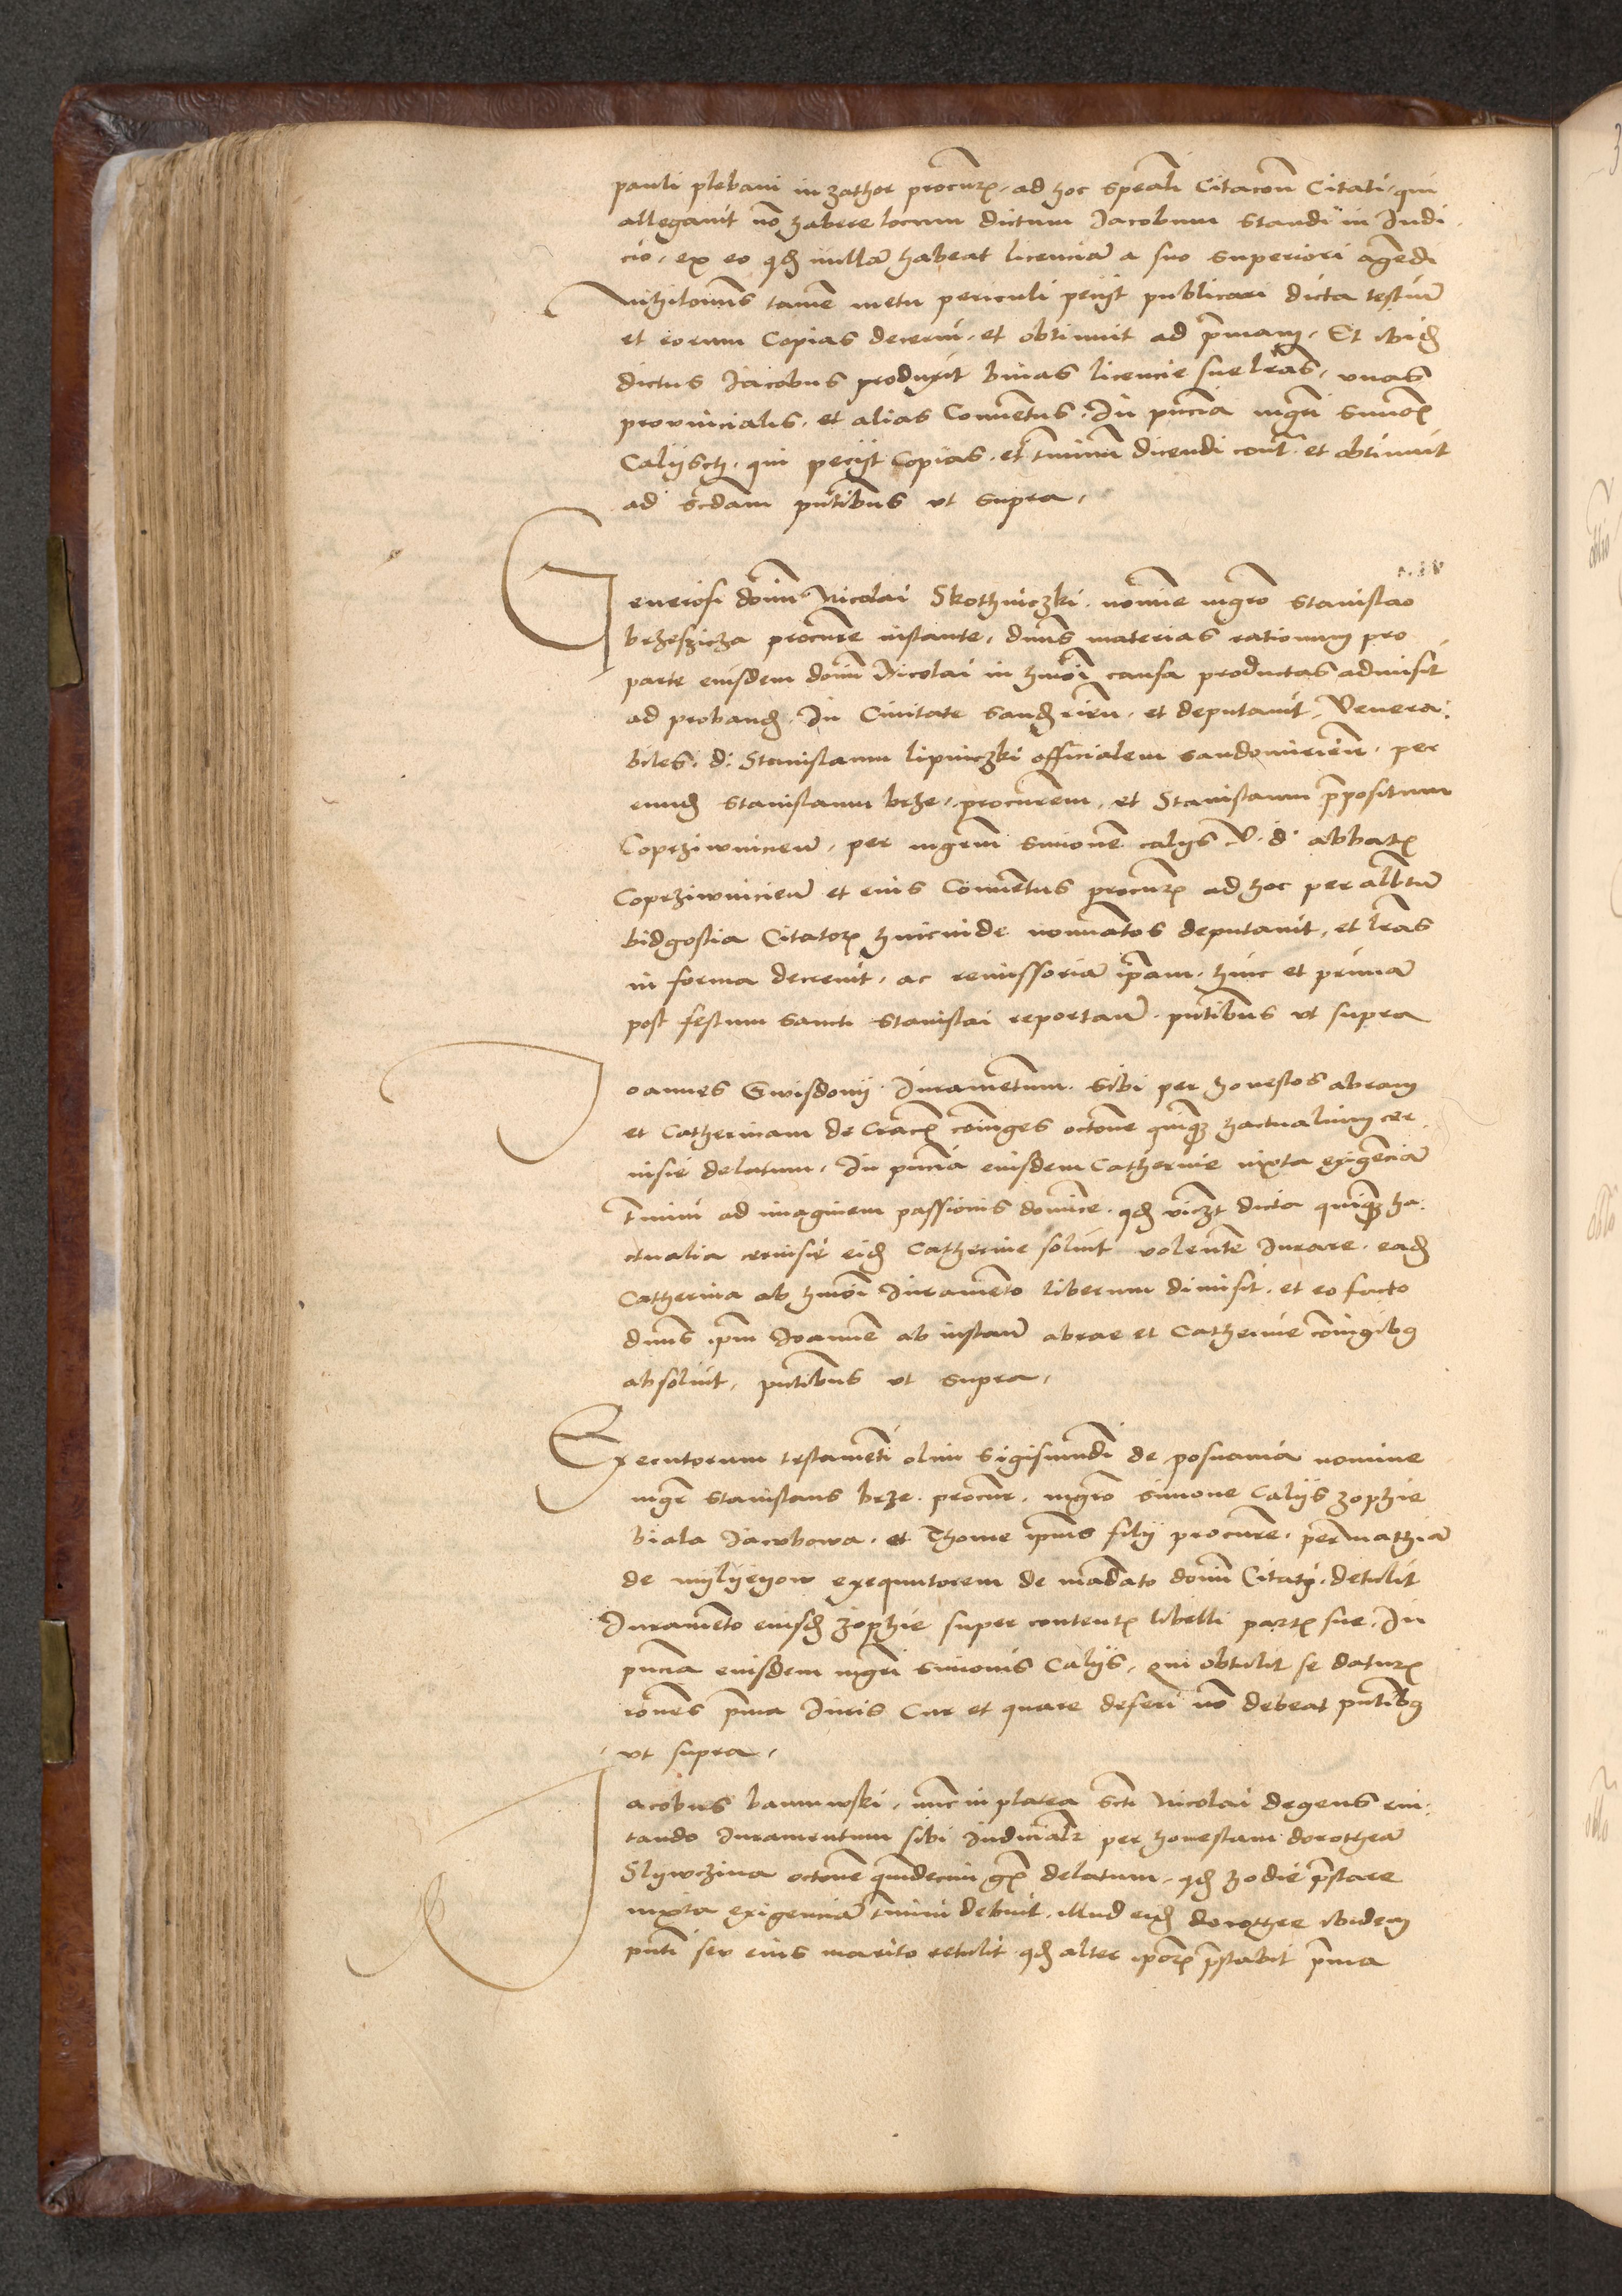 pauli plebani in zathor procur. ad hoc speali Citacon Citati. qui
allegavit no habere locum dictum Jacobum standi in Judi
cio. ex eo qd nulla habeat licencia a suo superiori agedi
Nihilomis tame metu periculi peciit publicari dicta testium
et eorum Copias decerni. et obtinuit ad pmam. Et ibid
dictus Jacobus produxit binas licencie sue lras, unas
provincialis. et alias Conuetus. In pncia mgri Simon
Caliisch. qui peciit Copias. et tminu dicendi cont. et obtinuit
ad scdam pntibus ut supra.
Generosi domi Nicolai Skothniczki. nomine mgro Stanislao
brzeszicza procure instante, dnus materias rationum pro
parte eiusdem domi Nicolai in hmoi causa productas admisit
ad proband. In Civitate sand rien. et deputavit, Venera:
biles. d: Stanislaum lipniczki officialem sandomirien. per
eund Stanislaum brze. procurem, et Stanislaum ppositum
Coprziwnicien. per mgrm Simone caliis V. d. abbatis
Coprziwnicien et eius Conuetus procur ad hoc per albtu
bidgostia Citator hincinde nominatos deputavit, et lras
in forma decrevit. ac remissoria ipam. hinc et prima
post festum sancti Stanislai reportan. pntibus ut supra
Joannes Gwisdonij. Jurametum. sibi per honestos abram
et Catherinam de Crac coiuges octone quiq hactualium cer
uisie delatum. In pncia eiusdem Catherine iuxta exigencia
tmini ad imaginem passionis domice. qd viczt dicta quiq ha:
ctualia ceruisie eid Catherine soluit volente Jurare. ead
Catherina ab hmoi Jurameto liberum dimisit. et eo facto
dnus ipm Joanne ab instan abrae et Catherine coiugibus
absoluit, pntibus ut supra.
Executorum testameti olim Sigismudi de posnania nomine
mgr Stanislaus brze. procur. mgro Simone Caliis zophie
biala Jacubowa. et Thome ipius filij procure. per mathia
de mylyeyow exequutorem de madato domi Citatis. detulit
Jurameto eiusd zophie super contentis libelli partis sue. In
pncia eiusdem mgri Simonis Caliis, qui obtulit se datur
rones pma Juris Cur et quare deferi no debeat pntibus
ut supra.
Jacobus banuwski. nuc in platea Scti Nicolai degens eui:
tando Juramentum sibi Judicialr per honestam dorothea
Slywczina octone quindecim gr delatum. qd hodie pstare
iuxta exigencia tmini debuit. illud eid dorothee ibidem
pnti seu eius marito retulit qd alter ipor pstabit pma